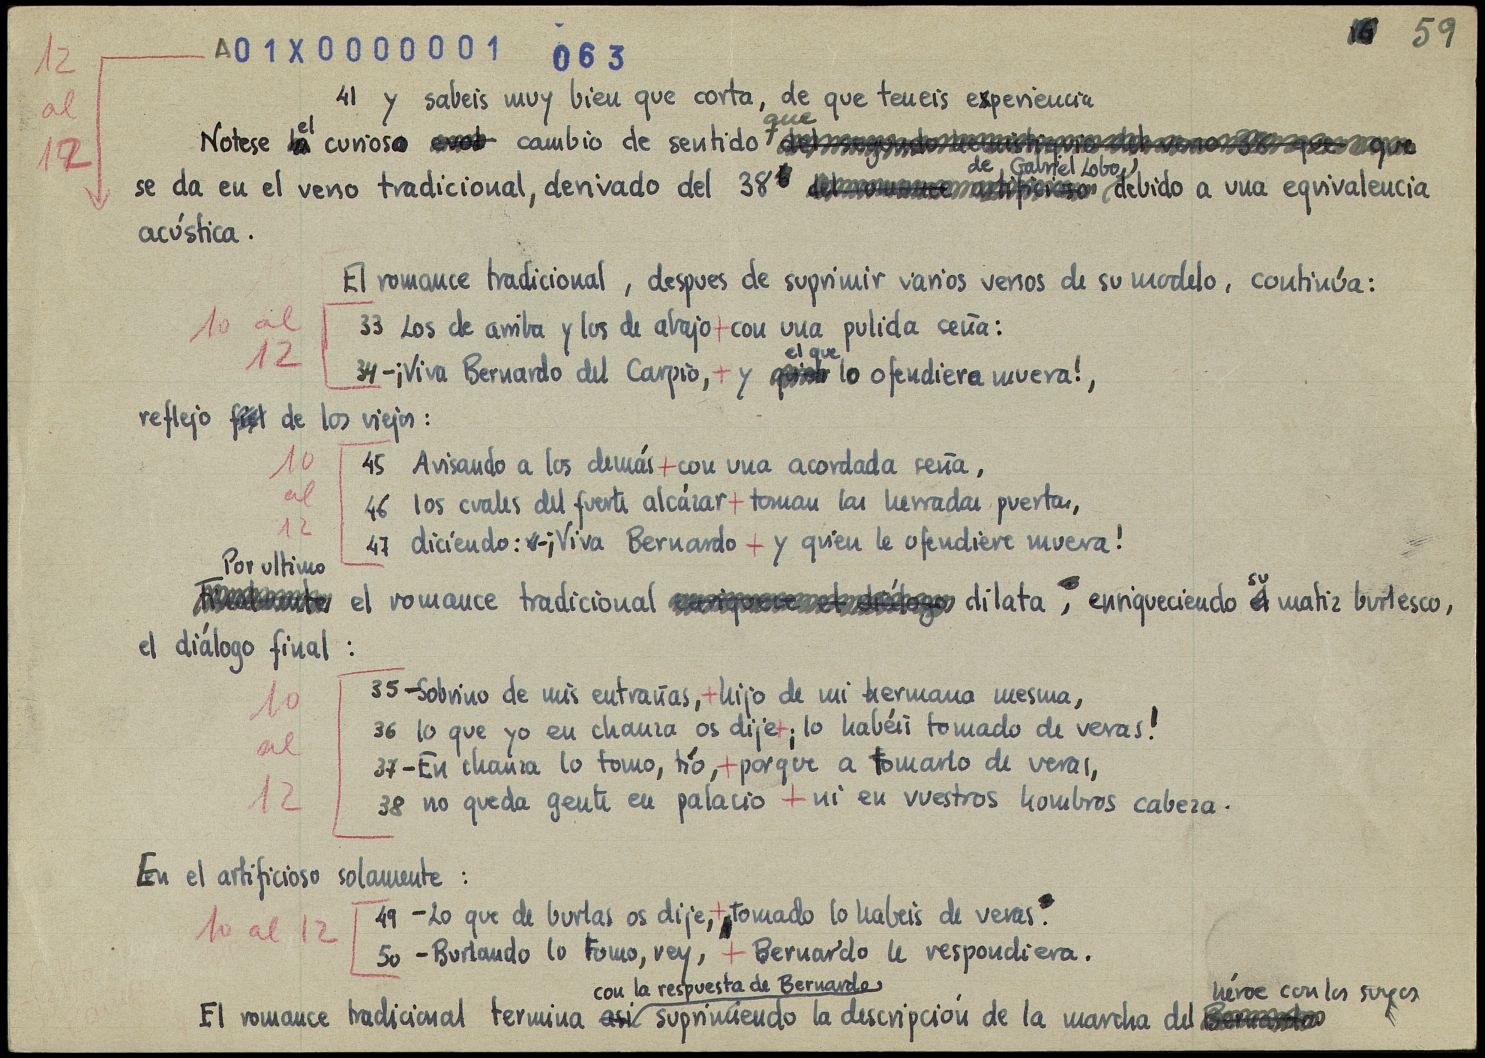 A01X0000001 063
59
12
al
12
41 y sabeis muy bien que corta, de que teneis experiencia
Notese el curioso cambio de sentido que
se da en el verso tradicional, derivado del 38 b de Gabriel Lobo, debido a una equivalencia
acústica.
El romance tradicional, despues de suprimir varios versos de su modelo, continúa:
10 al
12
33 Los de arriba y los de abajo + con una pulida seña:
34 -¡Viva Bernardo del Carpio, + y el que lo ofendiere muera!,
reflejo de los viejos:
10
al
12
45 Avisando a los demás + con una acordada seña,
46 los cuales del fuerte alcázar + toman las herradas puertas,
47 diciendo: -¡Viva Bernardo + y quien le ofendiere muera!
Por ultimo el romance tradicional dilata, enriqueciendo su matiz burlesco,
el diálogo final:
10
al
12
35 -Sobrino de mis entrañas, + hijo de mi hermana mesma,
36 lo que yo en chanza os dije + ¡lo habéis tomado de veras!
37 -En chanza lo tomo, tío, + porque a tomarlo de veras,
38 no queda gente en palacio + ni en vuestros hombros cabeza.
En el artificioso solamente:
10 al 12
49 -Lo que de burlas os dije, + tomado lo habeis de veras.
50 -Burlando lo tomo, rey, + Bernardo le respondiera.
El romance tradicional termina con la respuesta de Bernardo suprimiendo la descripción de la marcha del héroe con los suyos